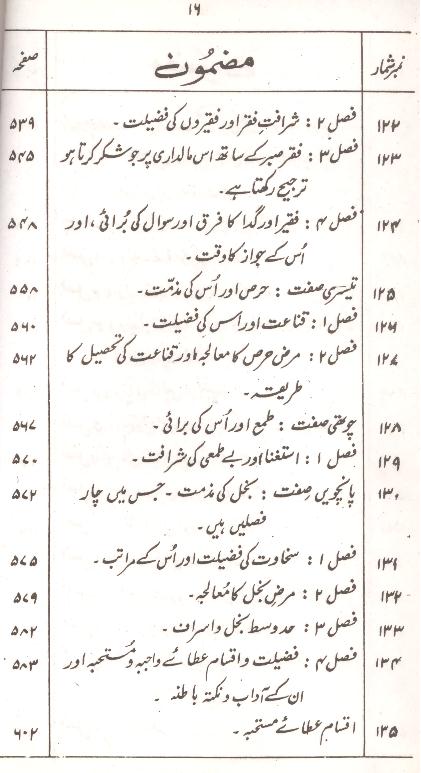 ۱۶
نمبرشمار مضمون صفحہ
۱۲۲ فصل ۲ : شرافتِ فقر اور فقیروں کی فضیلت ۔ ۵۳۹
۱۲۳ فصل ۳ : فقر صبر کے ساتھ اس مالداری پر جو شکر کرتا ہو ۵۴۵
ترجیح رکھتا ہے۔
۱۲۴ فصل ۴ : فقیر اور گدا کا فرق اور سوال کی بُرائی ، اور ۵۴۸
اُس کے جواز کا وقت ۔
۱۲۵ تیسری صفت : حرص اور اُس کی مذمّت ۔ ۵۵۸
۱۲۶ فصل ۱ : قناعت اور اس کی فضیلت ۔ ۵۶۰
۱۲۷ فصل ۲ : مرض حرص کا معالجہ اور قناعت کی تحصیل کا ۵۶۲
طریقہ ۔
۱۲۸ چوتھی صفت : طمع اور اُس کی برائی ۔ ۵۶۷
۱۲۹ فصل ۱ : استغنا اور بے طمعی کی شرافت ۔ ۵۷۰
۱۳۰ پانچویں صفت : بخل کی مذمت ۔ جس میں چار ۵۷۲
فصلیں ہیں ۔
۱۳۱ فصل ۱ : سخاوت کی فضیلت اور اُس کے مراتب ۔ ۵۷۵
۱۳۲ فصل ۲ : مرضِ بخل کا معالجہ ۔ ۵۷۹
۱۳۳ فصل ۳ : حد وسط بخل و اسراف ۔ ۵۸۲
۱۳۴ فصل ۴ : فضیلت و اقسام عطائے واجبہ و مُستحبہ اور ۵۸۳
ان کے آداب و نکتۂ باطنہ ۔
۱۳۵ اقسامِ عطائے مستحبہ ۔ ۶۰۲